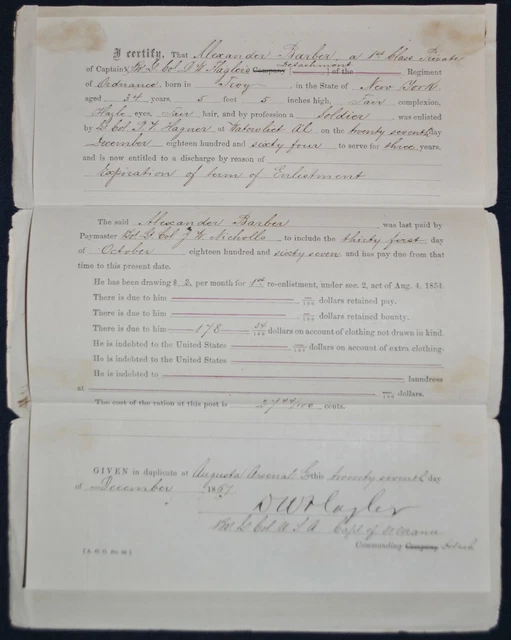 I certify, That Alexander Barber, a 1st Class Private
of Captain Bvt. Lt. Col. D. W. Flagler's Company Detachment of the Regiment
of Ordnance, born in Troy in the State of New York
aged 34 years, 5 feet 5 inches high, Fair complexion,
eyes, Fair hair, and by profession a Soldier was enlisted
by Lt Col P. V. Hagner at Watervliet Al on the twenty seventh day
December eighteen hundred and sixty four to serve for three years,
and is now entitled to a discharge by reason of
Expiration of term of Enlistment
The said Alexander Barber was last paid by
Paymaster Bvt Lt Col J. W. Nicholls to include the thirty first day
of October eighteen hundred and sixty seven and has pay due from that
time to this present date.
He has been drawing $ 2 per month for 1st re-enlistment, under sec. 2, act of Aug. 4, 1854.
There is due to him /100 dollars retained pay.
There is due to him /100 dollars retained bounty.
There is due to him 178 /100 dollars on account of clothing not drawn in kind.
He is indebted to the United States /100 dollars on account of extra clothing.
He is indebted to the United States
He is indebted to laundress
at /100 dollars.
The cost of the ration at this post is 27 /100 cents.
GIVEN in duplicate at Augusta Arsenal this twenty seventh day
of December 1867
D W Flagler
Bvt Lt Col U S A Capt of Ordnance
Commanding Company Detach